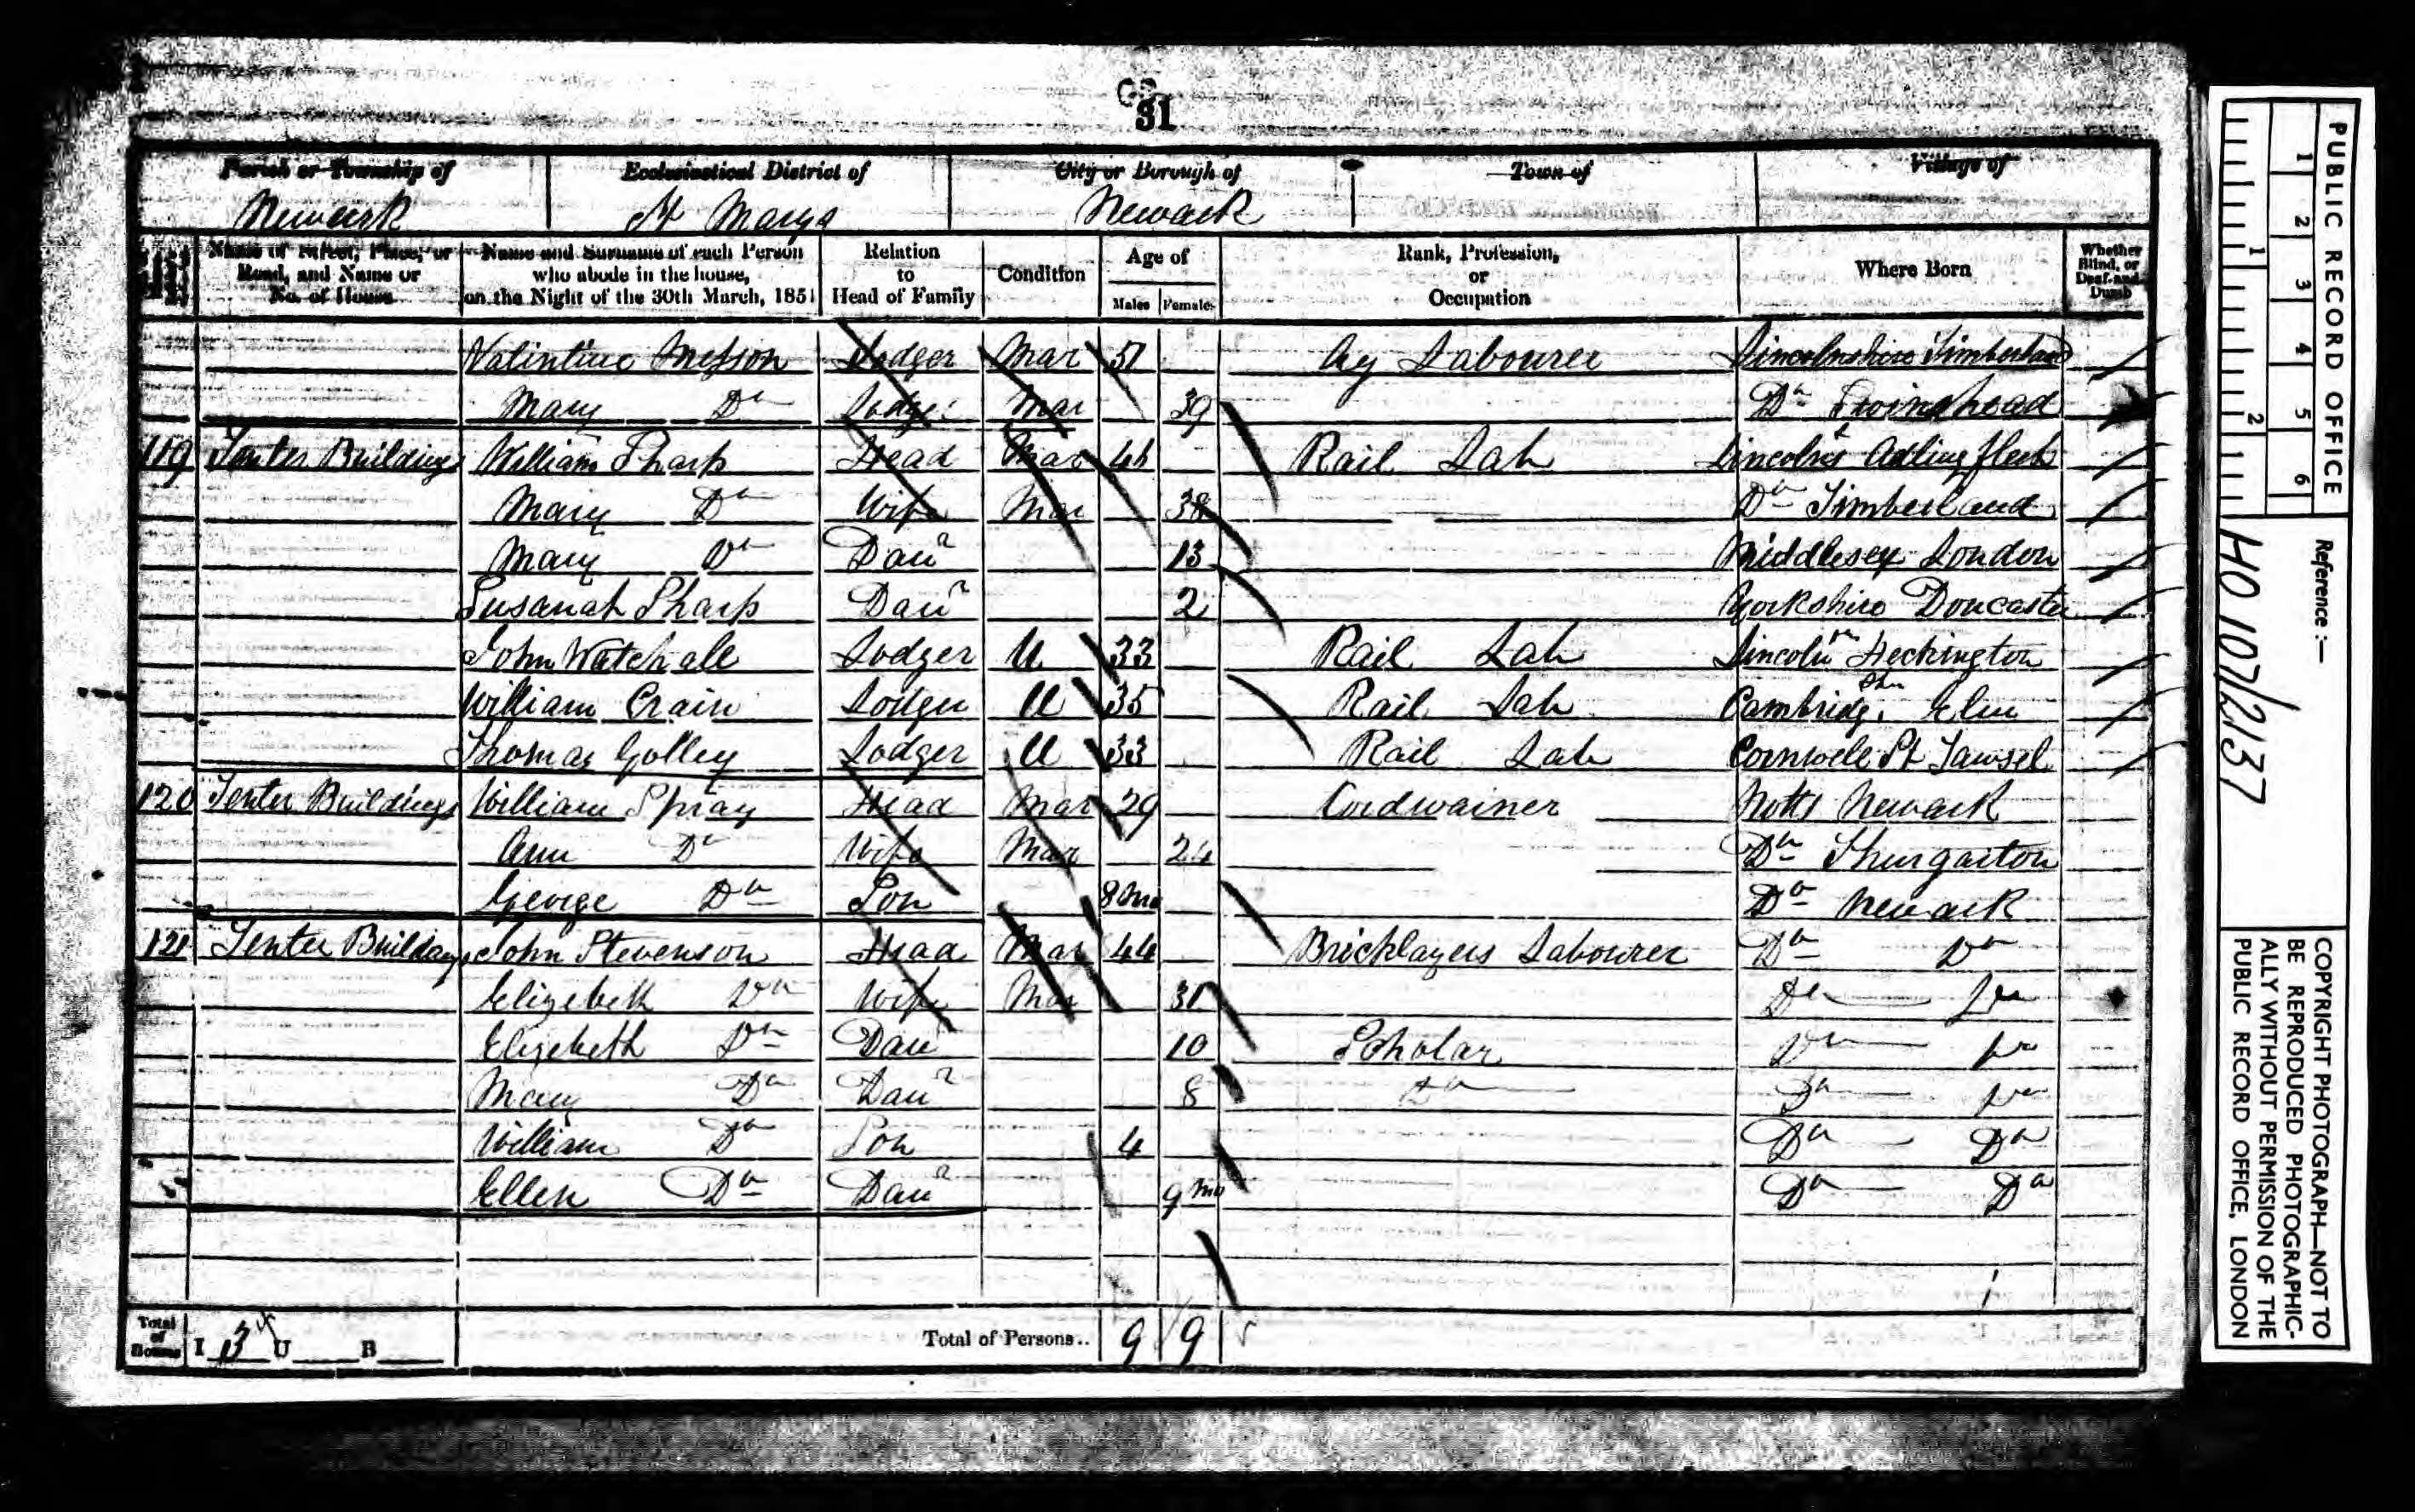 31
Parish or Township of Ecclesiastical District of City or Borough of Town of Village of
Newark St Marys Newark
Name of Street, Place, or Road, and Name or No. of House
Name and Surname of each Person who abode in the house, on the Night of the 30th March, 1851
Relation to Head of Family
Condition
Age of
Males Females
Rank, Profession, or Occupation
Where Born
Whether Blind, or Deaf-and-Dumb
Valintine Messon Lodger Mar 51 Ag Labourer Lincolnshire Timberland
Mary Do Lodger Mar 39 Do Swinshead
119 Tenter Buildings William Sharp Head Mar 46 Rail Lab Lincolns Adlingfleet
Mary Do Wife Mar 38 Do Timberland
Mary Do Daur 13 Middlesex London
Susanah Sharp Daur 2 Yorkshire Doncaster
John Watchall Lodger U 33 Rail Lab Lincoln Heckington
William Crain Lodger U 35 Rail Lab Cambridg shr Elm
Thomas Golley Lodger U 33 Rail Lab Cornwell St
120 Tenter Buildings William Spray Head Mar 29 Cordwainer Notts Newark
Ann Do Wife Mar 24 Do Thurgarton
George Do Son 8 Mo Do Newark
121 Tenter Buildings John Stevenson Head Mar 44 Bricklayers Labourer Do Do
Elizebeth Do Wife Mar 31 Do Do
Elizebeth Do Daur 10 Scholar Do Do
Mary Do Daur 8 Do Do Do
William Do Son 4 Do Do
Ellen Do Daur 9 Mo Do Do
Total of Houses I 3 U B Total of Persons.. 9 9
PUBLIC RECORD OFFICE
1 2 3 4 5 6
1 2
Reference :—
HO 107/2137
COPYRIGHT PHOTOGRAPH—NOT TO
BE REPRODUCED PHOTOGRAPHIC-
ALLY WITHOUT PERMISSION OF THE
PUBLIC RECORD OFFICE, LONDON